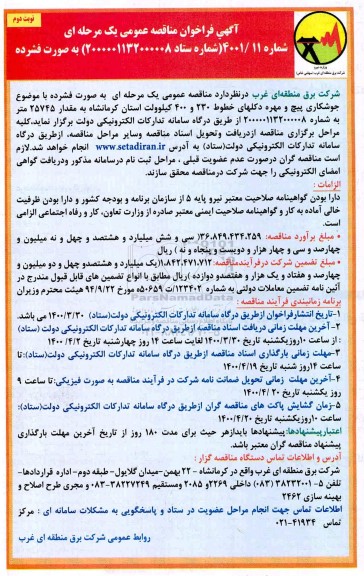 نوبت دوم
آگهی فراخوان مناقصه عمومی یک مرحله ای
شماره ۱۱ /۴۰۰۱(شماره ستاد ۲۰۰۰۰۰۱۱۳۲۰۰۰۰۰۸) به صورت فشرده
شرکت برق منطقه‌ای غرب درنظردارد مناقصه عمومی یک مرحله ای به صورت فشرده با موضوع
جوشکاری پیچ و مهره دکلهای خطوط ۲۳۰ و ۴۰۰ کیلوولت استان کرمانشاه به مقدار ۲۵۷۴۵ متر
به شماره ۲۰۰۰۰۰۱۱۳۲۰۰۰۰۰۸ از طریق درگاه سامانه تدارکات الکترونیکی دولت برگزار نماید،کلیه
مراحل برگزاری مناقصه ازدریافت وتحویل اسناد مناقصه وسایر مراحل مناقصه، ازطریق درگاه
سامانه تدارکات الکترونیکی دولت(ستاد) به آدرس www.setadiran.ir انجام خواهد شد.لازم
است مناقصه گران درصورت عدم عضویت قبلی ، مراحل ثبت نام درسامانه مذکور ودریافت گواهی
امضای الکترونیکی را جهت شرکت درمناقصه محقق سازند.
الزامات :
دارا بودن گواهینامه صلاحیت معتبر نیرو پایه ۵ از سازمان برنامه و بودجه کشور و دارا بودن ظرفیت
خالی آماده به کار و گواهینامه صلاحیت ایمنی معتبر صادره از وزارت تعاون، کار و رفاه اجتماعی الزامی
است.
• مبلغ برآورد مناقصه: ۳۶،۸۴۹،۴۳۴،۲۵۹( سی و شش میلیارد و هشتصد و چهل و نه میلیون و
چهارصد و سی و چهار هزار و دویست و پنجاه و نه ) ریال
• مبلغ تضمین شرکت درفرآیندمناقصه: ۱،۸۴۲،۴۷۱،۷۱۲(یک میلیارد و هشتصدو چهل و دو میلیون و
چهارصد و هفتاد و یک هزار و هفتصدو دوازده )ریال مطابق با انواع تضمین های قابل قبول مندرج در
آئین نامه تضمین معاملات دولتی به شماره ۱۲۳۴۰۲/ت۵۰۶۵۹ه مورخ ۹۴/۹/۲۲ هیئت محترم وزیران
برنامه زمانبندی فرآیند مناقصه :
۱-تاریخ انتشارفراخوان ازطریق درگاه سامانه تدارکات الکترونیکی دولت(ستاد) ۱۴۰۰/۳/۳۰ می باشد.
۲- آخرین مهلت زمانی دریافت اسناد مناقصه ازطریق درگاه سامانه تدارکات الکترونیکی دولت (ستاد)
: از ساعت ۱۰روزیکشنبه تاریخ ۱۴۰۰/۳/۳۰ لغایت ساعت ۱۴ روز چهارشنبه تاریخ ۱۴۰۰/۴/۲
۳-مهلت زمانی بارگذاری اسناد مناقصه ازطریق درگاه سامانه تدارکات الکترونیکی دولت(ستاد):تا
ساعت ۱۴روز شنبه تاریخ ۱۴۰۰/۴/۱۹
۴-آخرین مهلت زمانی تحویل ضمانت نامه شرکت در فرآیند مناقصه به صورت فیزیکی:تا ساعت ۹
روز یکشنبه تاریخ ۱۴۰۰/۴/۲۰
۵-زمان گشایش پاکت های مناقصه گران ازطریق درگاه سامانه تدارکات الکترونیکی دولت(ستاد):
ساعت ۱۰روزیکشنبه تاریخ ۱۴۰۰/۴/۲۰
اعتبارپیشنهادها:پیشنهادها بایدازهر حیث برای مدت ۱۸۰ روز از تاریخ آخرین مهلت بارگذاری
پیشنهاد مناقصه گران معتبر باشد.
آدرس و اطلاعات تماس دستگاه مناقصه گزار :
شرکت برق منطقه ای غرب واقع در کرمانشاه - ۲۲بهمن-میدان گلایول- طبقه دوم-اداره قراردادها-
تلفن ۵- ۳۸۲۳۲۰۰۱ (۰۸۳) داخلی ۲۲۶۹و ۲۰۸۵ ومستقیم ۳۸۲۲۷۲۴۹-۰۸۳ و مجری طرح اصلاح و
بهینه سازی ۲۴۶۲
اطلاعات تماس جهت انجام مراحل عضویت در ستاد و پاسخگویی به مشکلات سامانه ای : مرکز
تماس ۴۱۹۳۴-۰۲۱
روابط عمومی شرکت برق منطقه ای غرب